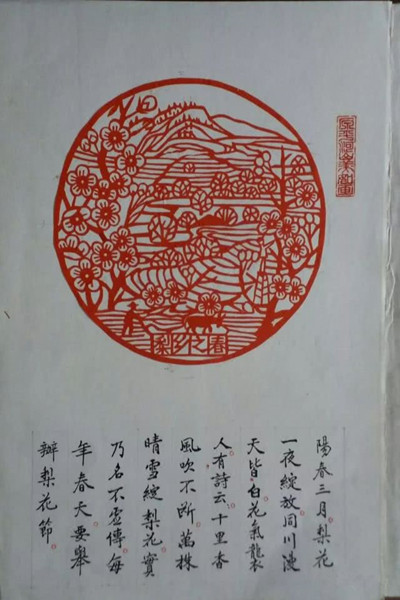 梨乡之春
陽春三月梨花
一夜綻放同川漫
天皆白花氣襲
人有詩云十里香
風吹不斷萬株
晴雪綻梨花實
乃名不虛傳每
年春天要舉
辦梨花節